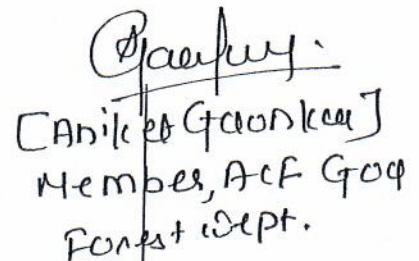 [Aniket Gaonkar]
Member, ACF Goa
Forest Dept.